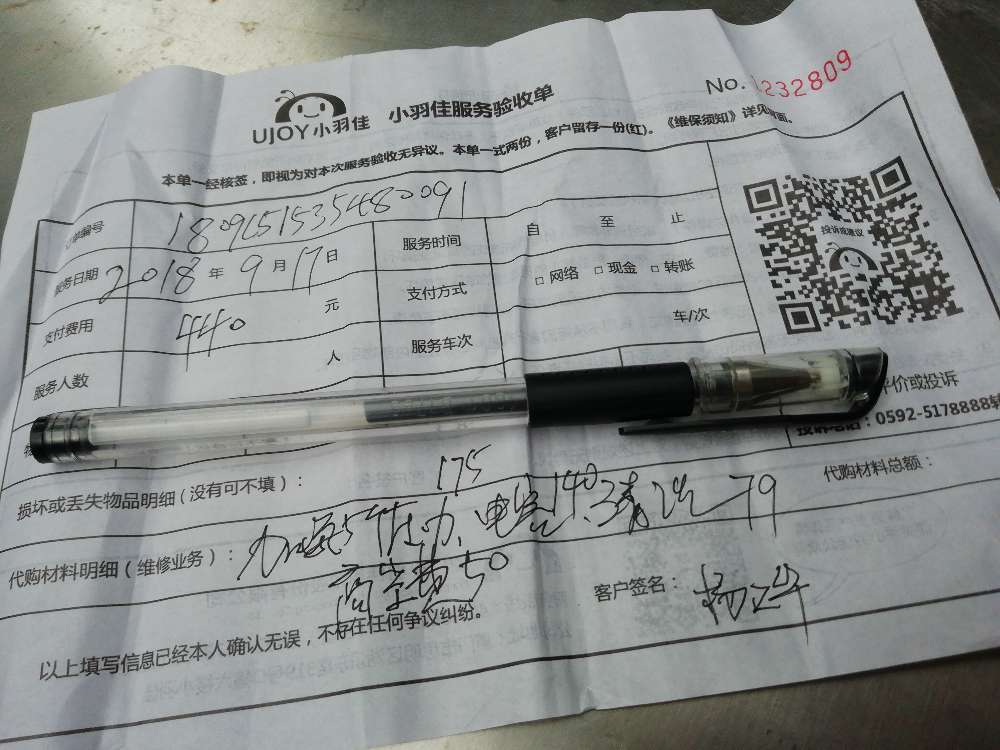 UJOY小羽佳 小羽佳服务验收单 No. 1232809
本单一经核签，即视为对本次服务验收无异议。本单一式两份，客户留存一份(红)。《维保须知》详见背面。
订单编号 180915153548009 1 服务时间 自 至 止
服务日期 2018 年 9 月 17 日 支付方式 □ 网络 □ 现金 □ 转账
投诉或建议
支付费用 440 元 服务车次 车/次
服务人数 人
评价或投诉
0592-5178888转
损坏或丢失物品明细（没有可不填）： 175 代购材料总额：
代购材料明细（维修业务）： 电容140 清洗 79
高空费50
客户签名：
以上填写信息已经本人确认无误，不存在任何争议纠纷。